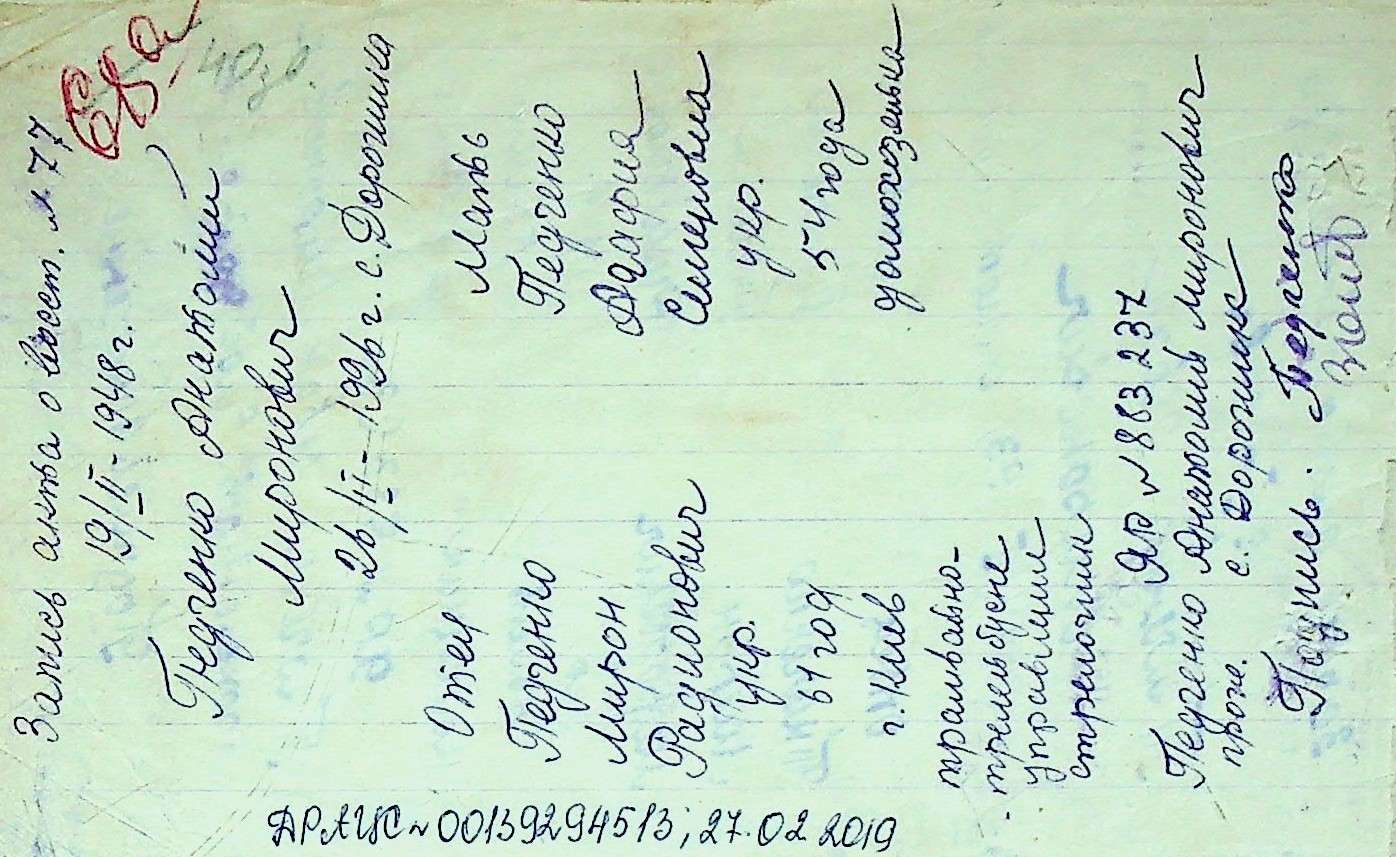 Запись акта о восст. № 77
19/II-1948 г.
Педченко Анатолий
Миронович
26/II-1926 г. с. Дорогинка
Отец
Педченко
Мирон
Радионович
укр.
61 год
г. Киев
трамвайно-
тролейбусне
управление
стрелочник
Мать
Педченко
Агафия
Семеновна
укр.
54 года
домохозяйка
ЯР № 883237
Педченко Анатолий Миронович
прож. с. Дорогинка
Подпись. Педченко
ДРАЦС № 00139294513; 27.02 2019